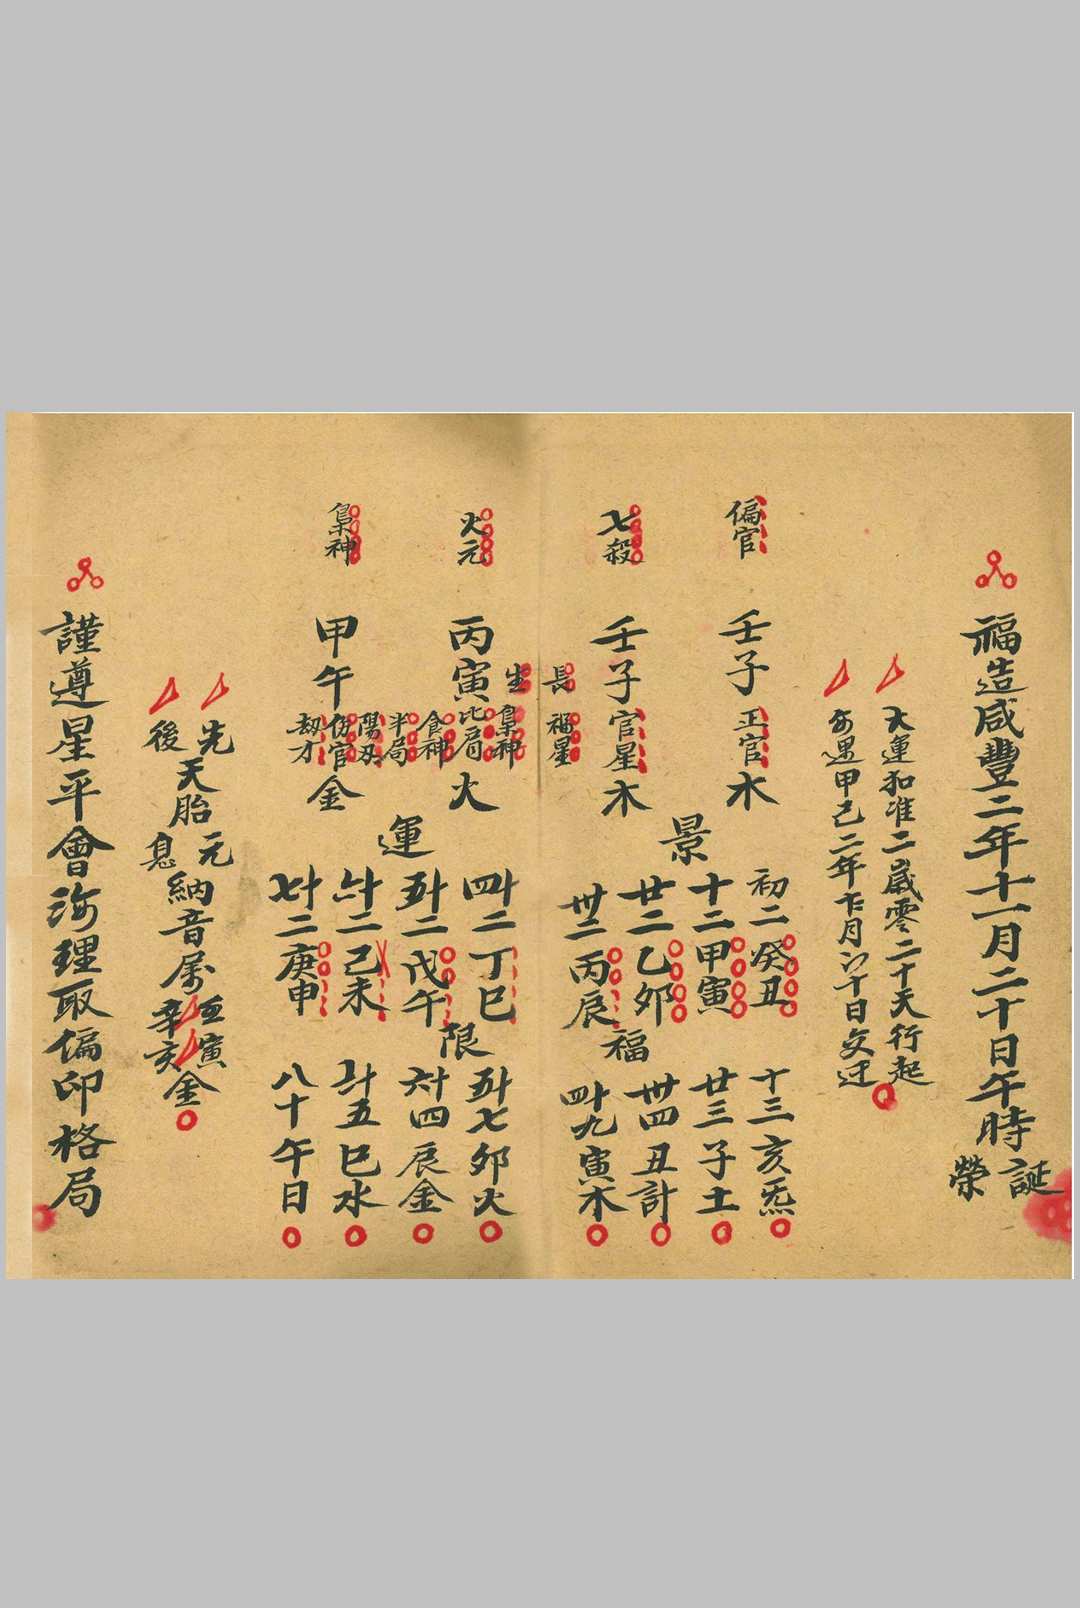 福造咸豐二年十一月二十日午時榮誕
大運扣准二歲零二十天行起
每遇甲己二年 月 十日交迁
偏官
壬子
正官
木
七殺
壬子
官星
木
景
初二癸丑
十二甲寅
廿二乙卯
卅二丙辰
福
十三亥炁
廿三子土
卅四丑計
四十九寅木
長生
福星
梟神
火元
丙寅
比肩
食神
火
梟神
甲午
半局
陽刃
伤官
劫才
金
運
四十二丁巳
五十二戊午
六十二己未
七十二庚申
限
五十七卯火
六十四辰金
七十五巳水
八十午日
先後天胎元息納音属 寅辛亥金
謹遵星平會海理取偏印格局